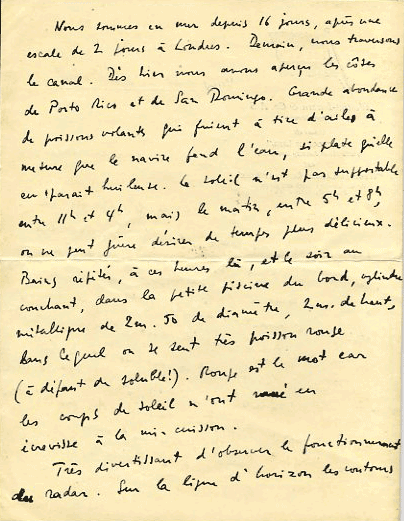 Nous sommes en mer depuis 16 jours, après une
escale de 2 jours à Londres. Demain, nous traversons
le canal. Dès hier nous avons aperçu les côtes
de Porto Rico et de San Domingo. Grande abondance
de poissons volants qui fuient à tire d'ailes à
mesure que le navire fend l'eau, si plate qu'elle
en paraît huileuse. Le soleil n'est pas supportable
entre 11h et 4h, mais le matin, entre 5h et 8h,
on ne peut guère désirer de temps plus délicieux.
Bains répétés, à ces heures là, et le soir au
couchant, dans la petite piscine du bord, cylindre
métallique de 2m. 50 de diamètre, 2m. de haut,
dans lequel on se sent très poisson rouge
(à défaut de soluble!). Rouge est le mot car
les coups de soleil m'ont en
écrevisse à la mi-cuisson.
Très divertissant d'observer le fonctionnement
du radar. Sur la ligne d'horizon les contours